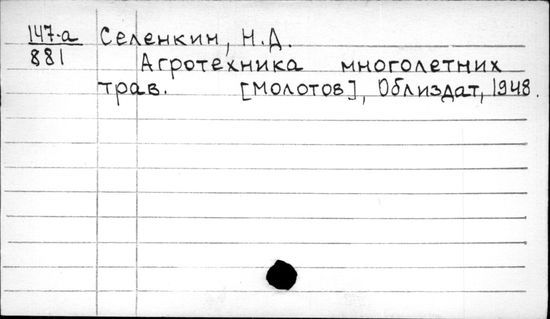 147-а Селенкин, Н.Д.
881 Агротехника многолетних
трав. [Молотов], Облиздат, 1948.